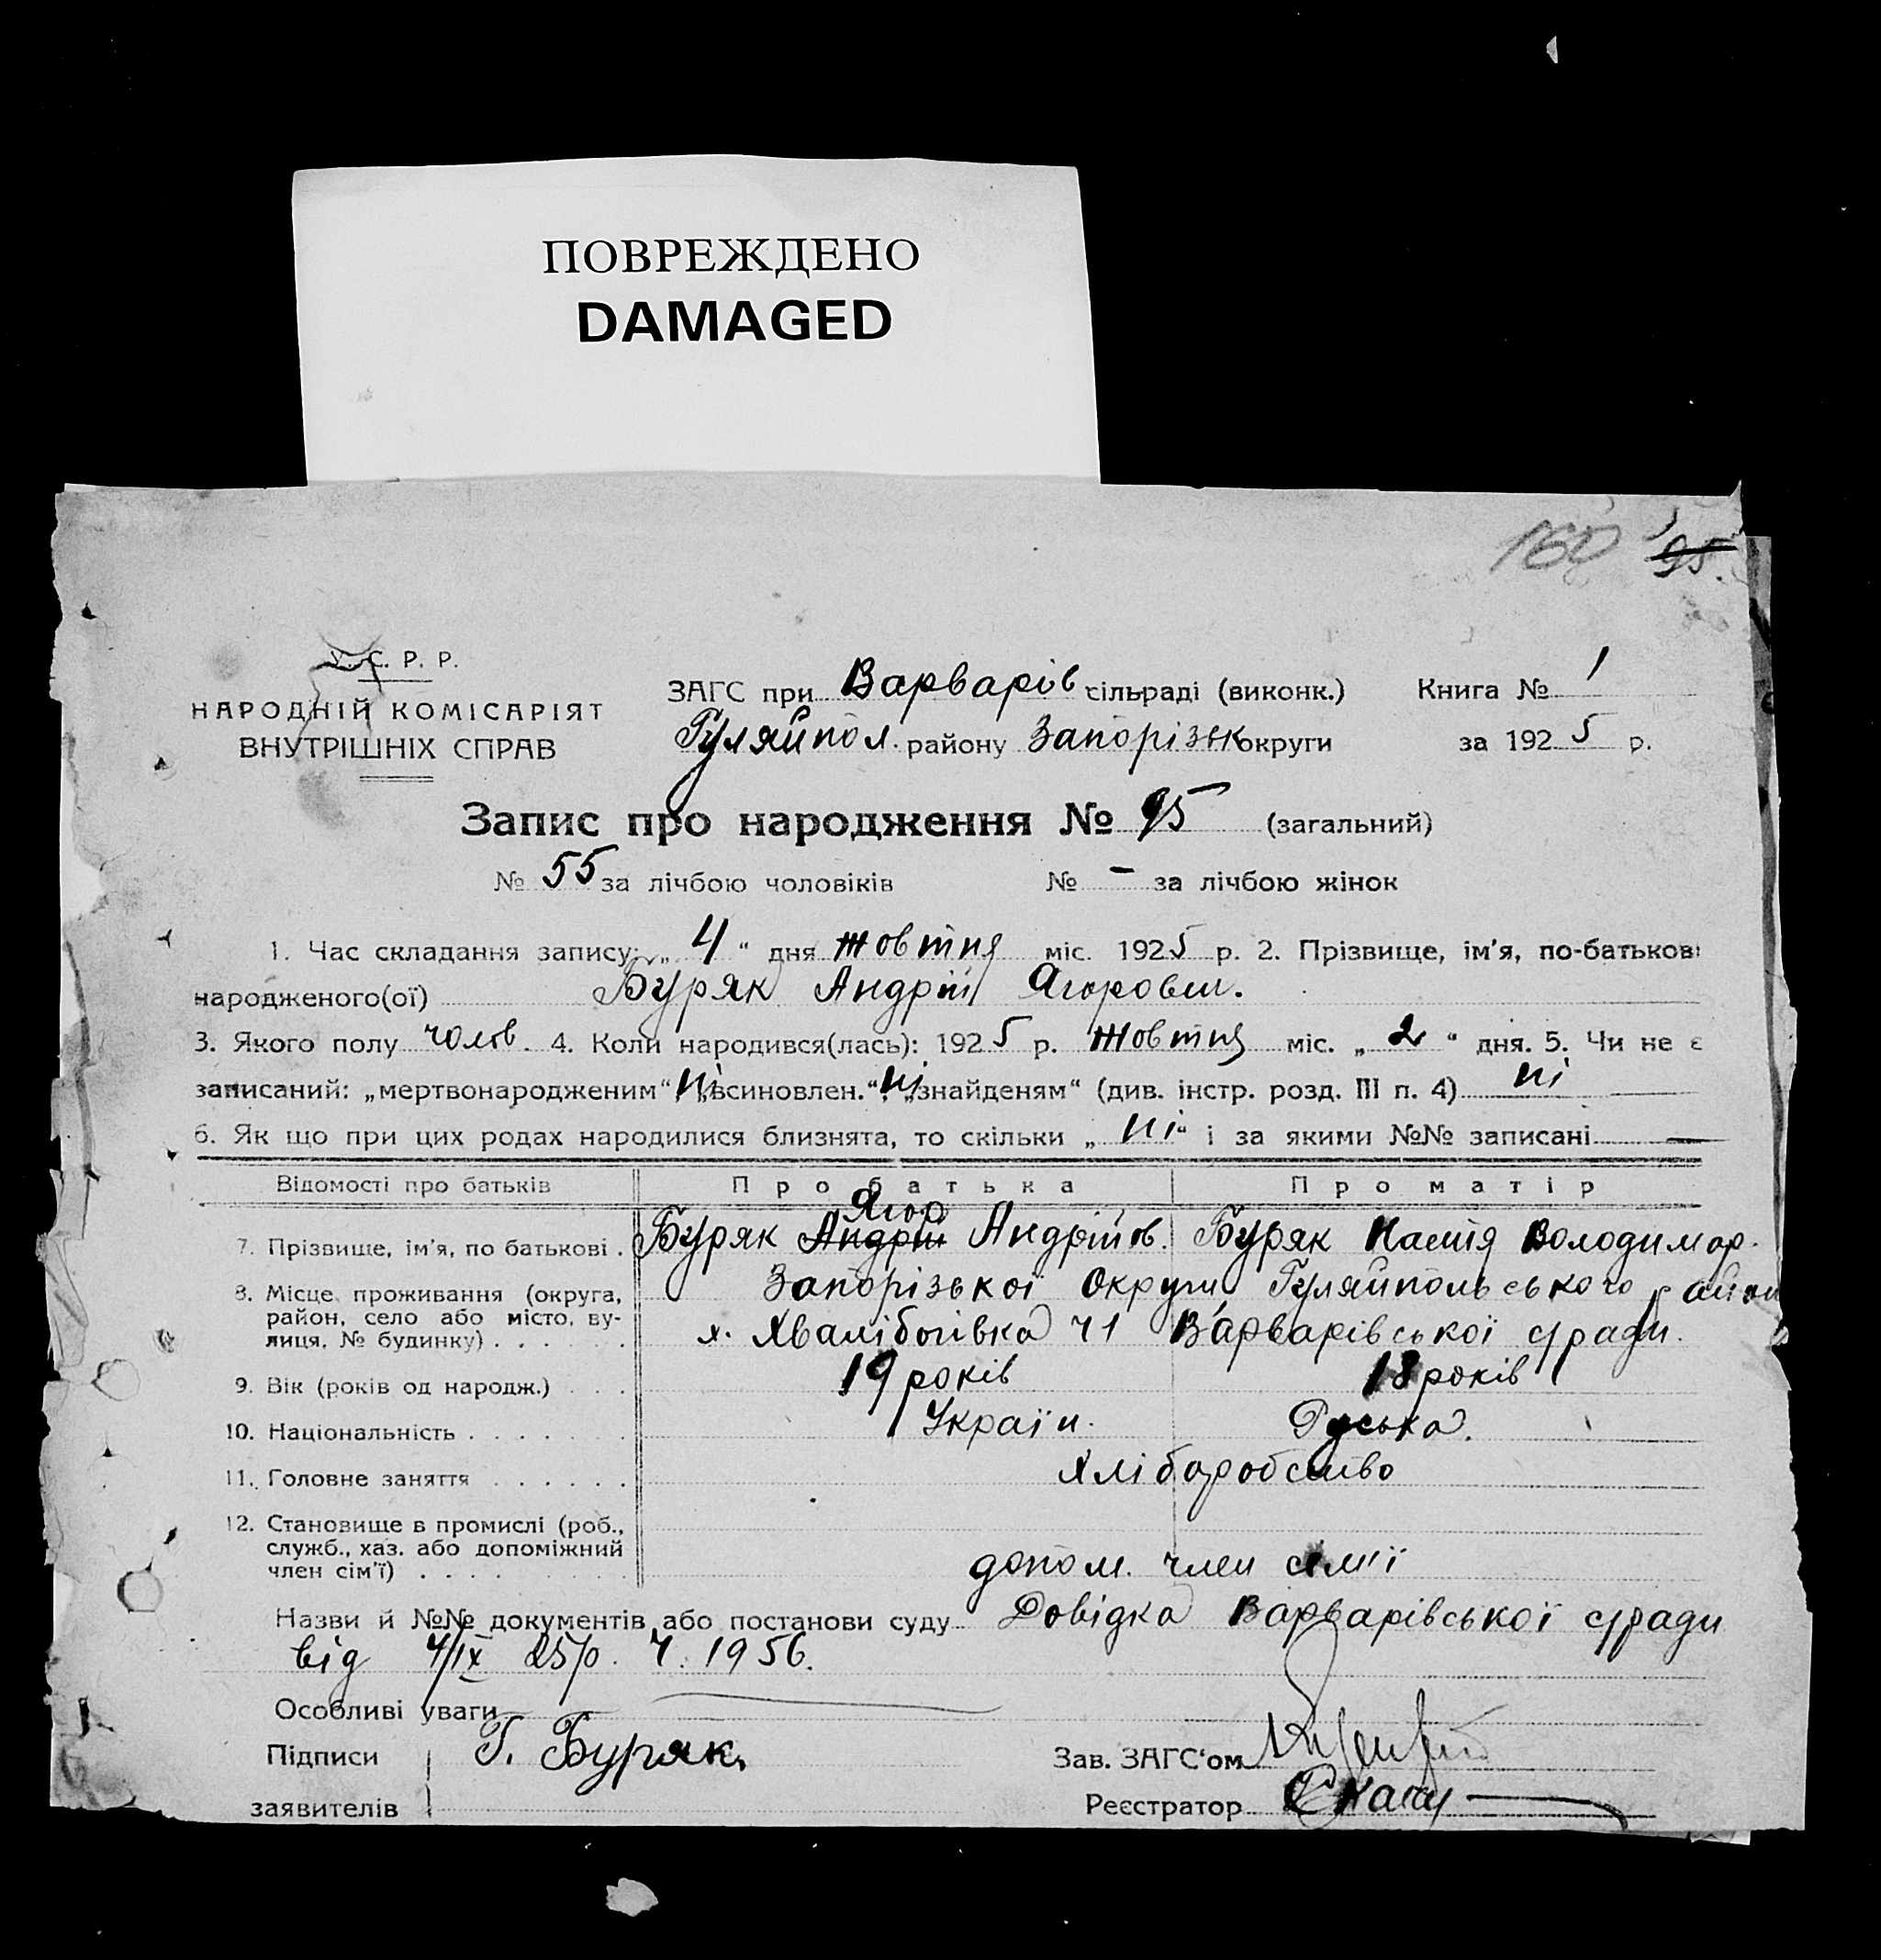 ПОВРЕЖДЕНО
DAMAGED
160 95.
У. С. Р. Р.
НАРОДНІЙ КОМІСАРІЯТ
ВНУТРІШНІХ СПРАВ
ЗАГС при Варварів сільраді (виконк.) Книга № 1
Гуляйпол. району Запорізьк округи за 1925 р.
Запис про народження № 95 (загальний)
№ 55 за лічбою чоловіків № – за лічбою жінок
1. Час складання запису: „ 4 “ дня жовтня міс. 1925 р. 2. Прізвище, ім'я, по-батькові
народженого(ої) Буряк Андрій Ягорович.
3. Якого полу чолов. 4. Коли народився(лась): 1925 р. жовтня міс. „ 2 “ дня. 5. Чи не є
записаний: „мертвонародженим“ ні „всиновлен.“ ні „знайденям“ (див. інстр. розд. III п. 4) ні
6. Як що при цих родах народилися близнята, то скільки „ ні “ і за якими №№ записані —
Відомості про батьків Про батька Про матір
Ягор
7. Прізвище, ім'я, по батькові . Буряк Андрій Андрійов. Буряк Настя Володимар.
8. Місце проживання (округа, Запорізької Округи Гуляйпольського район
район, село або місто, ву-
лиця, № будинку) . . . . . . х. Хвалібогівка ч1 Варварівської с/ради.
9. Вік (років од народж.) . . . 19 років 18 років
10. Національність . . . . . . . Україн. Руська.
11. Головне заняття . . . . . . хліборобство
12. Становище в промислі (роб.,
служб., хаз. або допоміжний
член сім'ї) . . . . . . . . . допом. член сім'ї
Назви й №№ документів або постанови суду Довідка Варварівської с/ради
від 4/ІХ 25 р. Ч. 1956.
Особливі уваги
Підписи Г. Буряк. Зав. ЗАГС'ом
заявителів Реєстратор